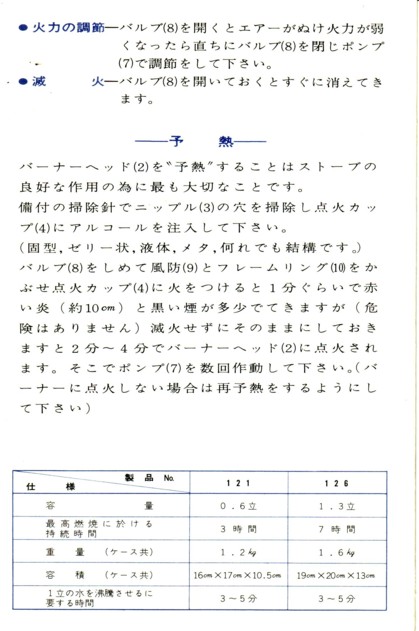 ● 火力の調節―バルブ(8)を開くとエアーがぬけ火力が弱
くなったら直ちにバルブ(8)を閉じポンプ
(7)で調節をして下さい。
● 滅　　　火―バルブ(8)を開いておくとすぐに消えてき
ます。
――予　　熱――
バーナーヘッド(2)を〝予熱〟することはストーブの
良好な作用の為に最も大切なことです。
備付の掃除針でニップル(3)の穴を掃除し点火カッ
プ(4)にアルコールを注入して下さい。
(固型,ゼリー状,液体,メタ,何れでも結構です。)
バルブ(8)をしめて風防(9)とフレームリング(10)をか
ぶせ点火カップ(4)に火をつけると1分ぐらいで赤
い炎(約10cm)と黒い煙が多少でてきますが(危
険はありません)滅火せずにそのままにしておき
ますと2分～4分でバーナーヘッド(2)に点火され
ます。そこでポンプ(7)を数回作動して下さい。(バ
ーナーに点火しない場合は再予熱をするようにし
て下さい)
仕　様　製品No.　121　126
容　　量　0.6立　1.3立
最高燃焼に於ける
持続時間　3時間　7時間
重　量　(ケース共)　1.2kg　1.6kg
容　積　(ケース共)　16cm×17cm×10.5cm　19cm×20cm×13cm
1立の水を沸騰させるに
要する時間　3～5分　3～5分